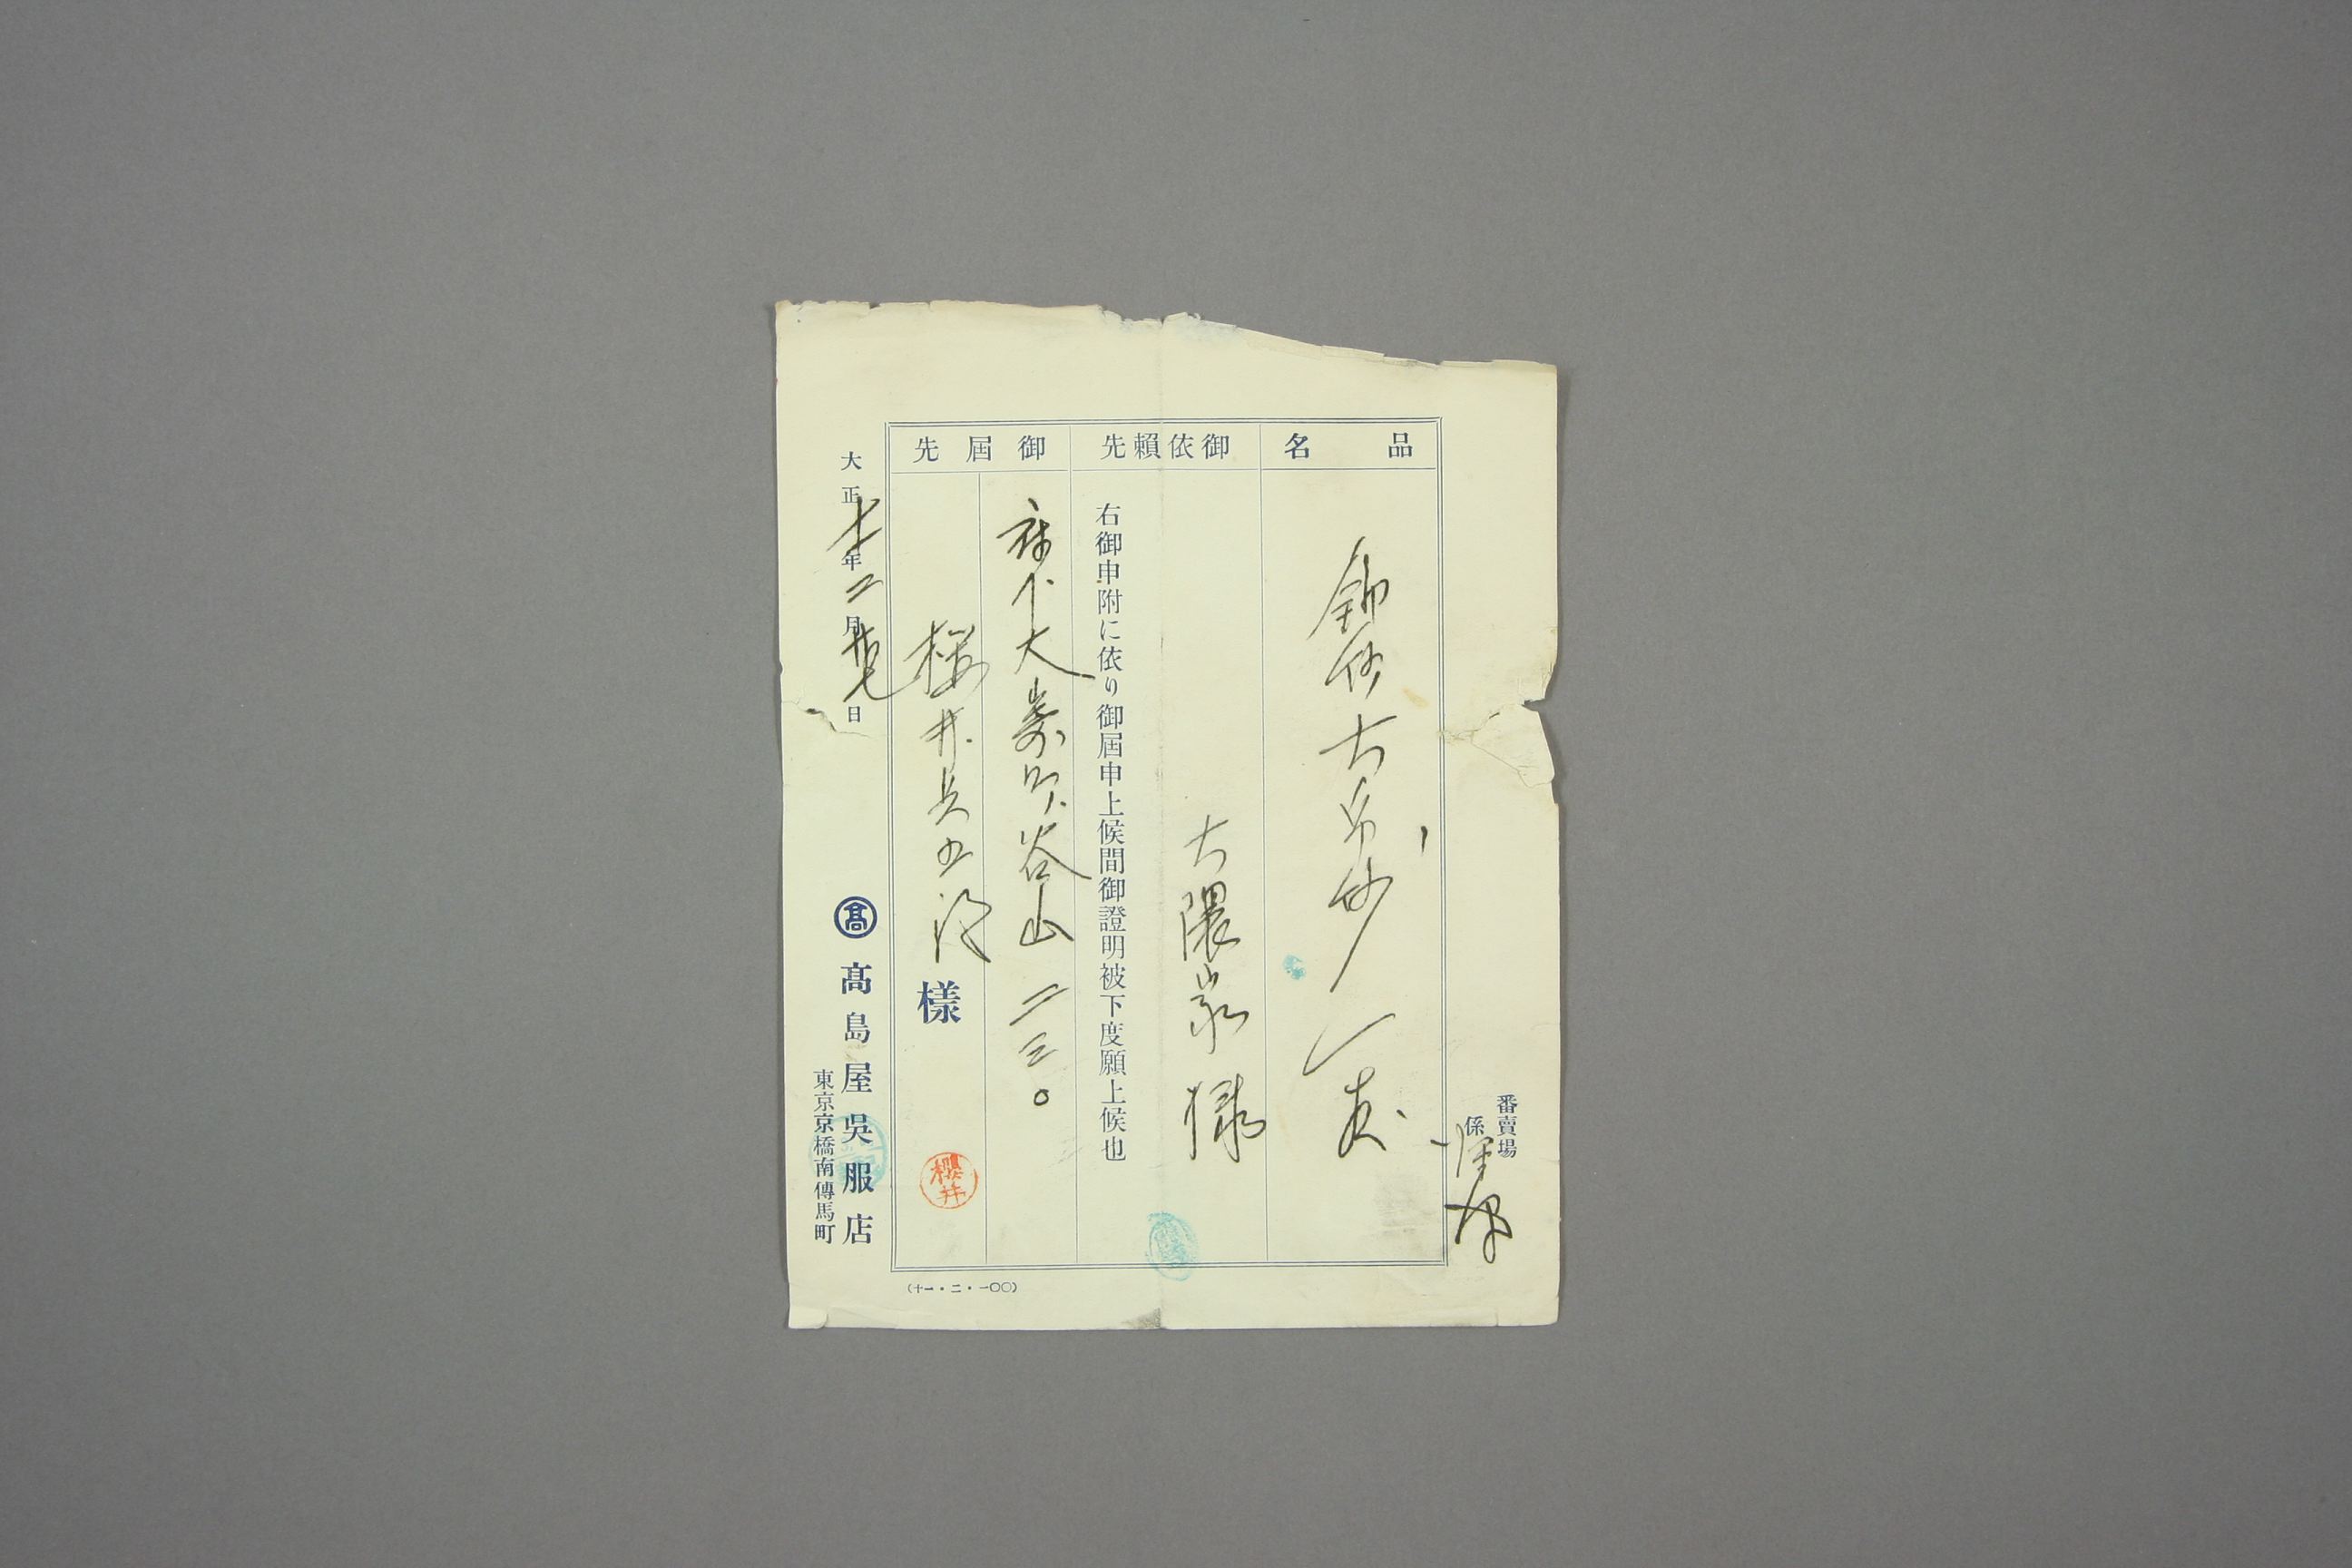 番賣場
係
品名
大帛紗
御依賴先
大隈家様
右御申附に依り御屆申上候間御證明被下度願上候也
御屆先
府下大崎町谷山二三〇
櫻井兵五郎様
櫻井
大正十一年二月廿七日
髙
髙島屋吳服店
東京京橋南傳馬町
(十一・二・一〇〇)